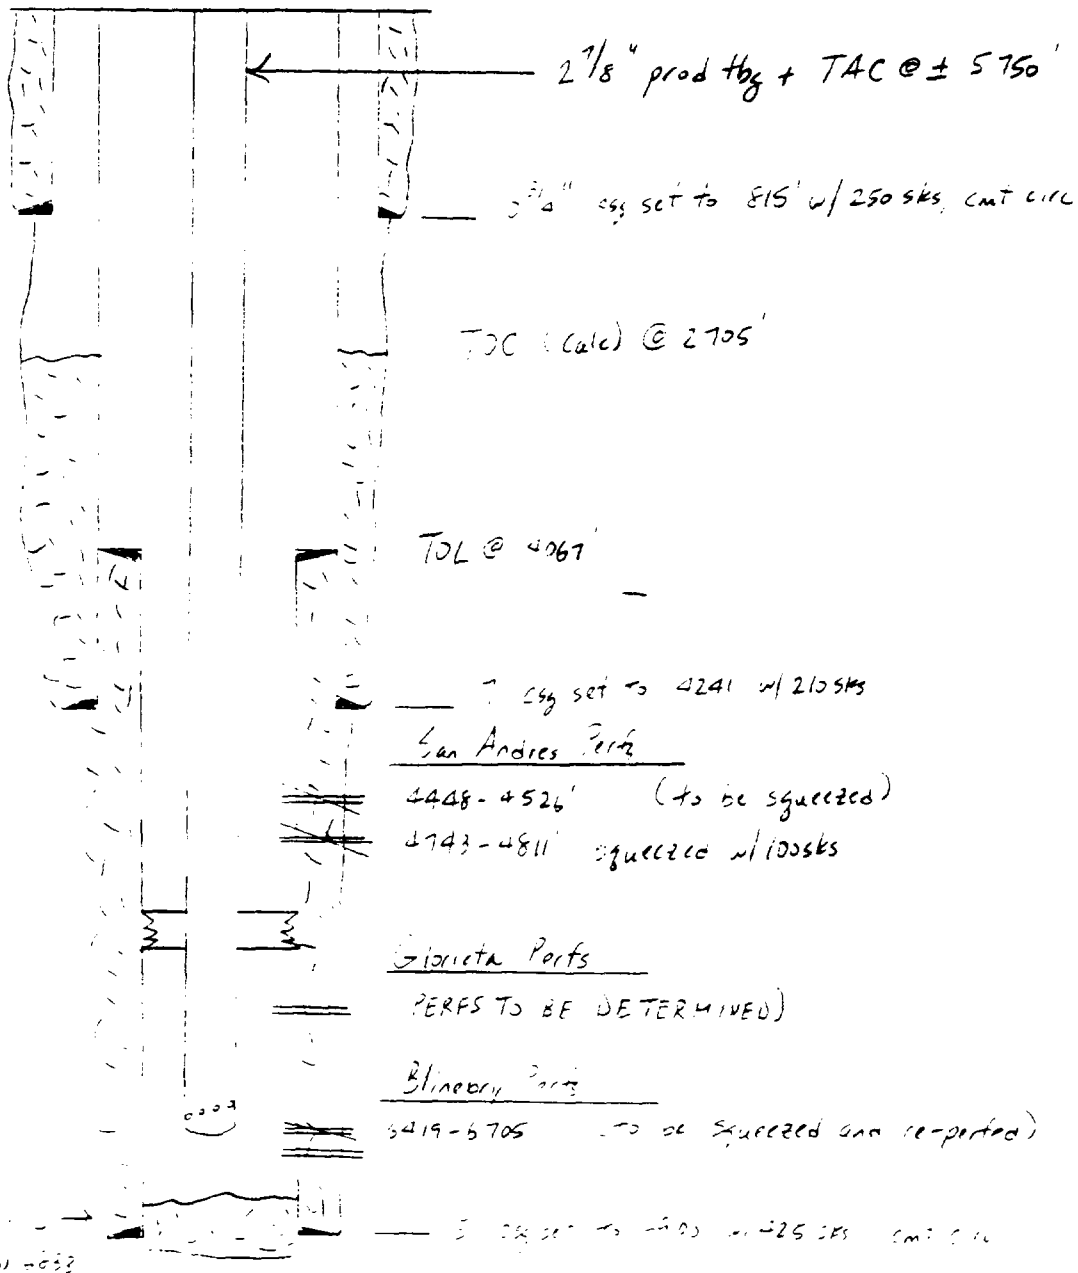 2 7/8" prod tbg + TAC @ ± 5750'
3/4" csg set to 815' w/250 sks, cmt circ
TOC (Calc) @ 2705'
TOL @ 4067'
7 csg set to 4241 w/ 210 sks
San Andres Perfs
4448-4526' (to be squeezed)
4743-4811' squeezed w/100sks
Glorieta Perfs
PERFS TO BE DETERMINED)
Blinebry Perfs
6419-6705 to be squeezed and re-perfed)
csg set to w 425 sks cmt circ